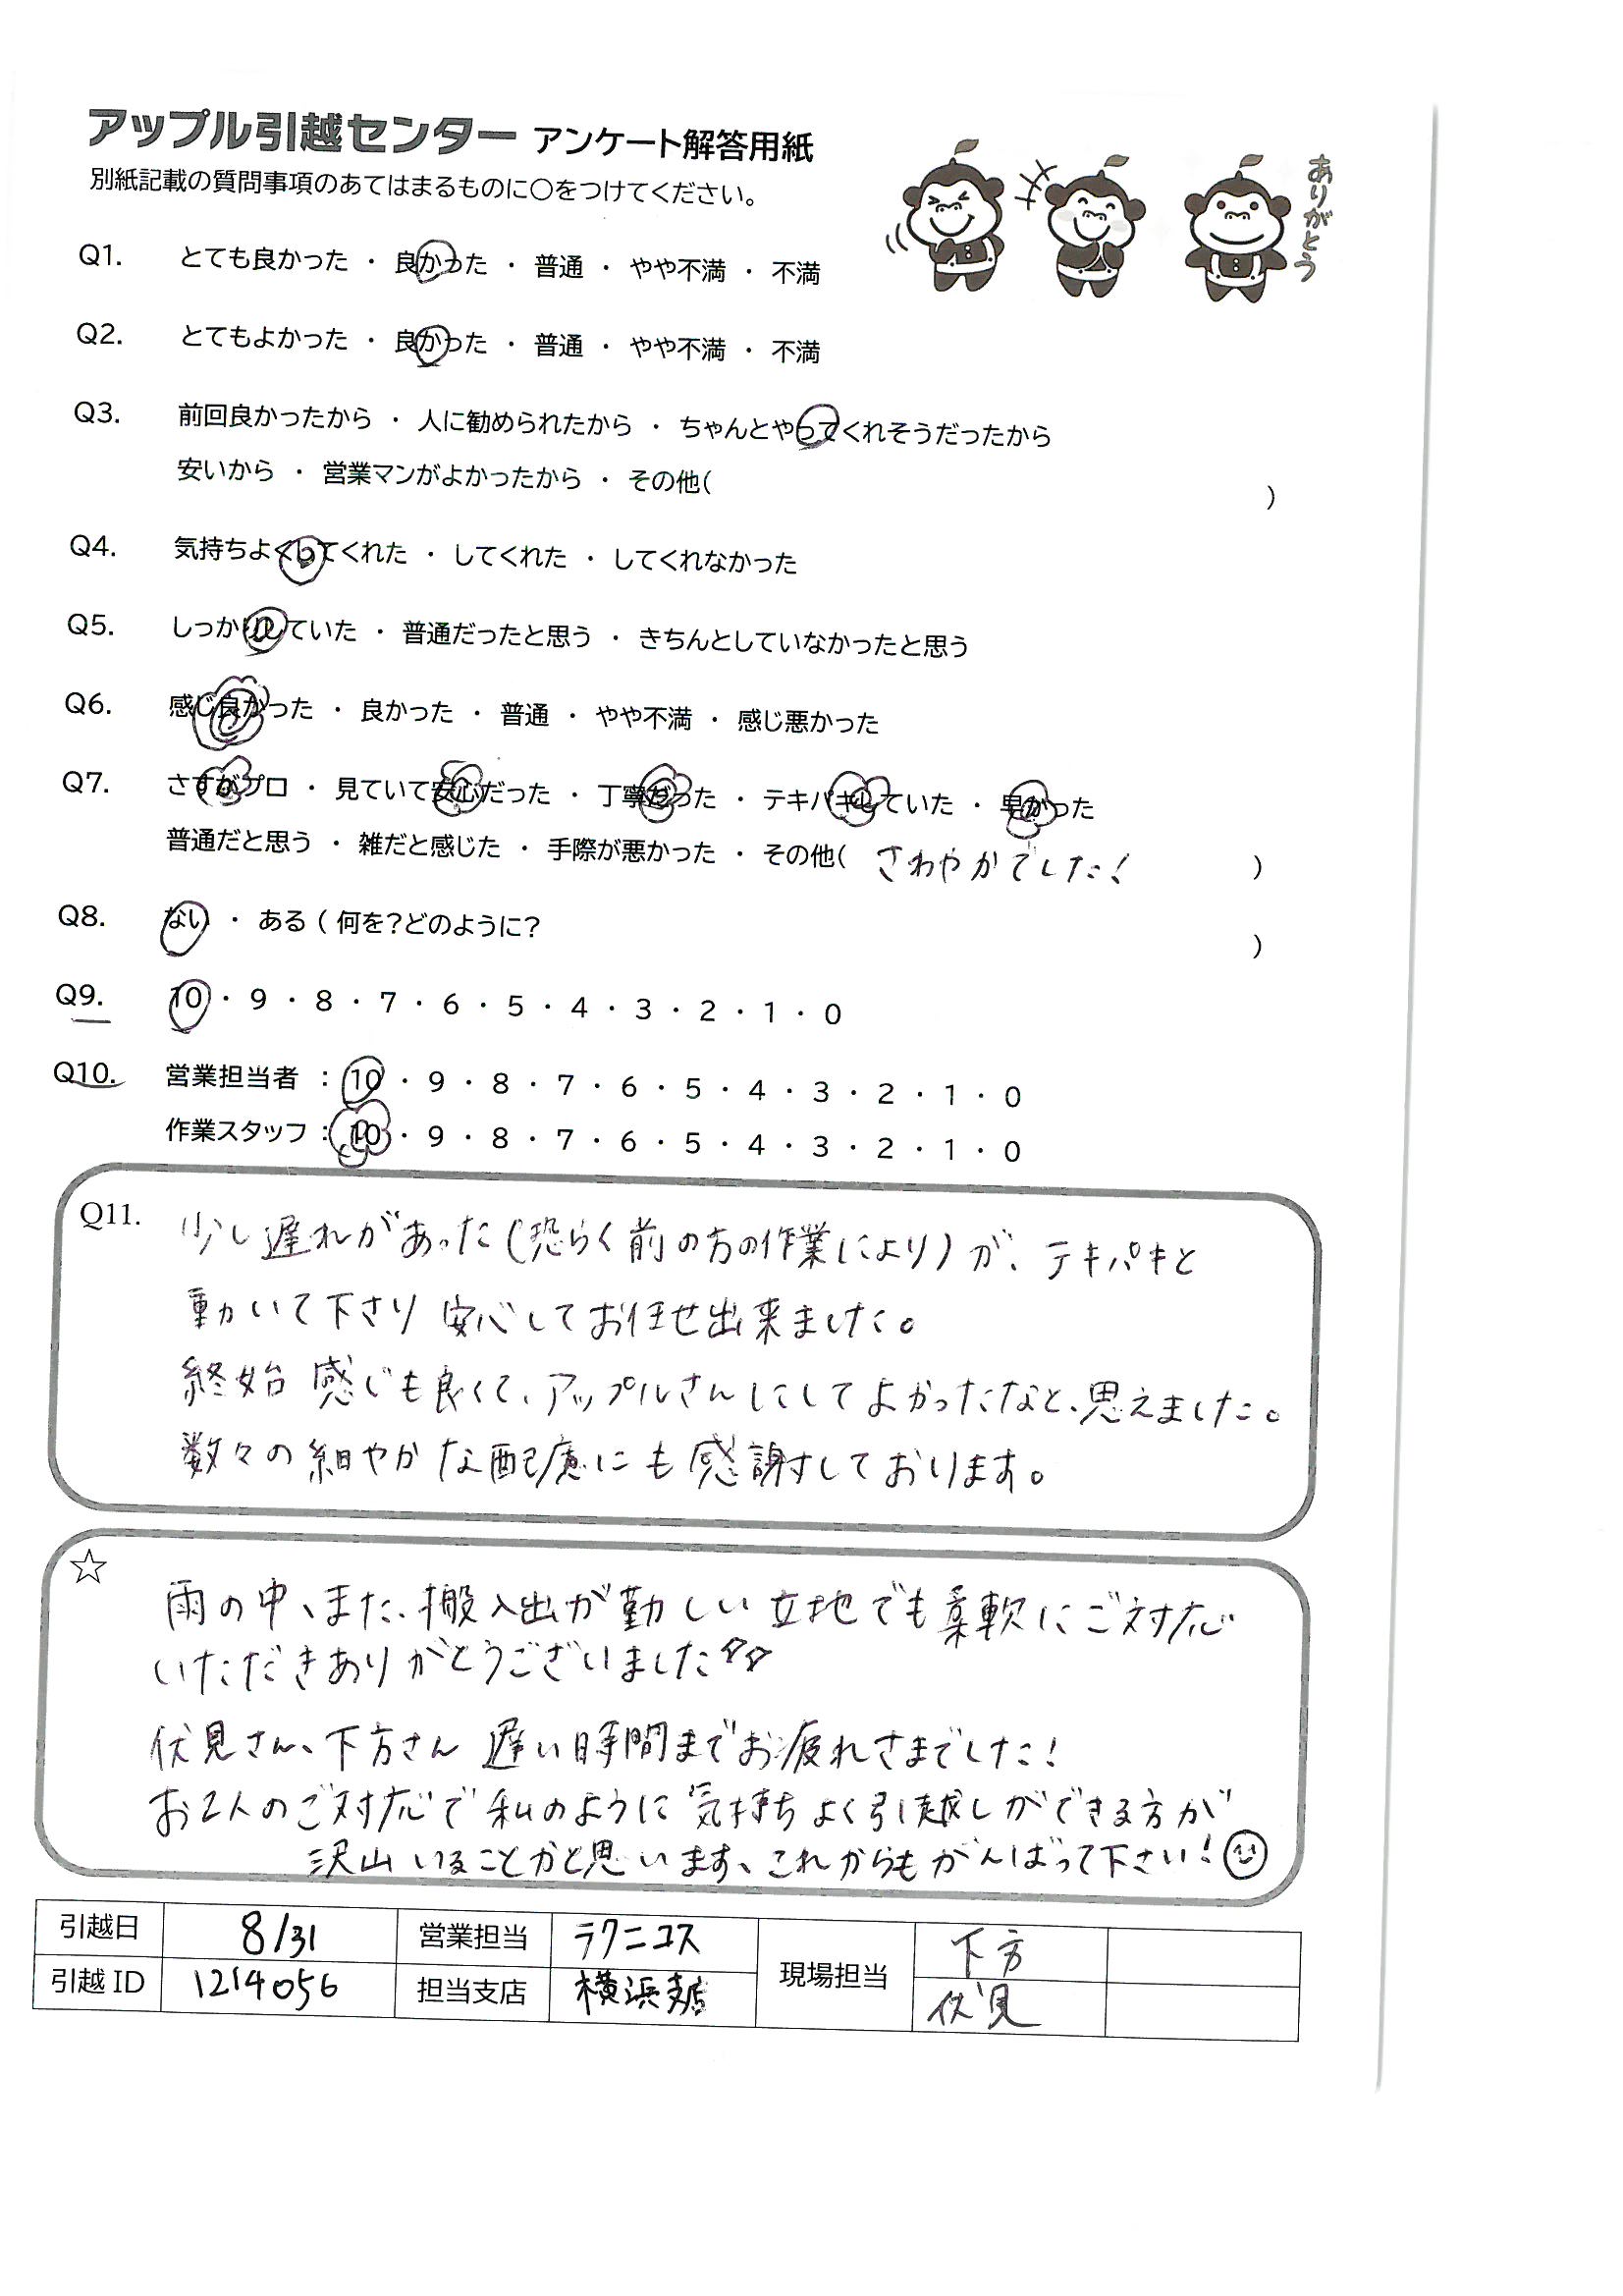 アップル引越センター アンケート解答用紙
別紙記載の質問事項のあてはまるものに〇をつけてください。
ありがとう
Q1. とても良かった ・ 良かった ・ 普通 ・ やや不満 ・ 不満
Q2. とてもよかった ・ 良かった ・ 普通 ・ やや不満 ・ 不満
Q3. 前回良かったから ・ 人に勧められたから ・ ちゃんとやってくれそうだったから
安いから ・ 営業マンがよかったから ・ その他( )
Q4. 気持ちよくしてくれた ・ してくれた ・ してくれなかった
Q5. しっかりしていた ・ 普通だったと思う ・ きちんとしていなかったと思う
Q6. 感じ良かった ・ 良かった ・ 普通 ・ やや不満 ・ 感じ悪かった
Q7. さすがプロ ・ 見ていて安心だった ・ 丁寧だった ・ テキパキしていた ・ 早かった
普通だと思う ・ 雑だと感じた ・ 手際が悪かった ・ その他( さわやかでした! )
Q8. ない ・ ある ( 何を?どのように? )
Q9. 10 ・ 9 ・ 8 ・ 7 ・ 6 ・ 5 ・ 4 ・ 3 ・ 2 ・ 1 ・ 0
Q10. 営業担当者 : 10 ・ 9 ・ 8 ・ 7 ・ 6 ・ 5 ・ 4 ・ 3 ・ 2 ・ 1 ・ 0
作業スタッフ : 10 ・ 9 ・ 8 ・ 7 ・ 6 ・ 5 ・ 4 ・ 3 ・ 2 ・ 1 ・ 0
Q11. 少し遅れがあった(恐らく前の方の作業により)が、テキパキと
動いて下さり安心してお任せ出来ました。
終始感じも良くて、アップルさんにしてよかったなと、思えました。
数々の細やかな配慮にも感謝しております。
☆ 雨の中、また、搬入出が勤しい立地でも柔軟にご対応
いただきありがとうございました☆☆
伏見さん、下方さん 遅い時間までお疲れさまでした!
お2人のご対応で私のように気持ちよく引越しができる方が
沢山いることかと思います、これからもがんばって下さい!
引越日 8/31 営業担当 ラクニコス 現場担当 下方
引越 ID 1214056 担当支店 横浜支店 伏見